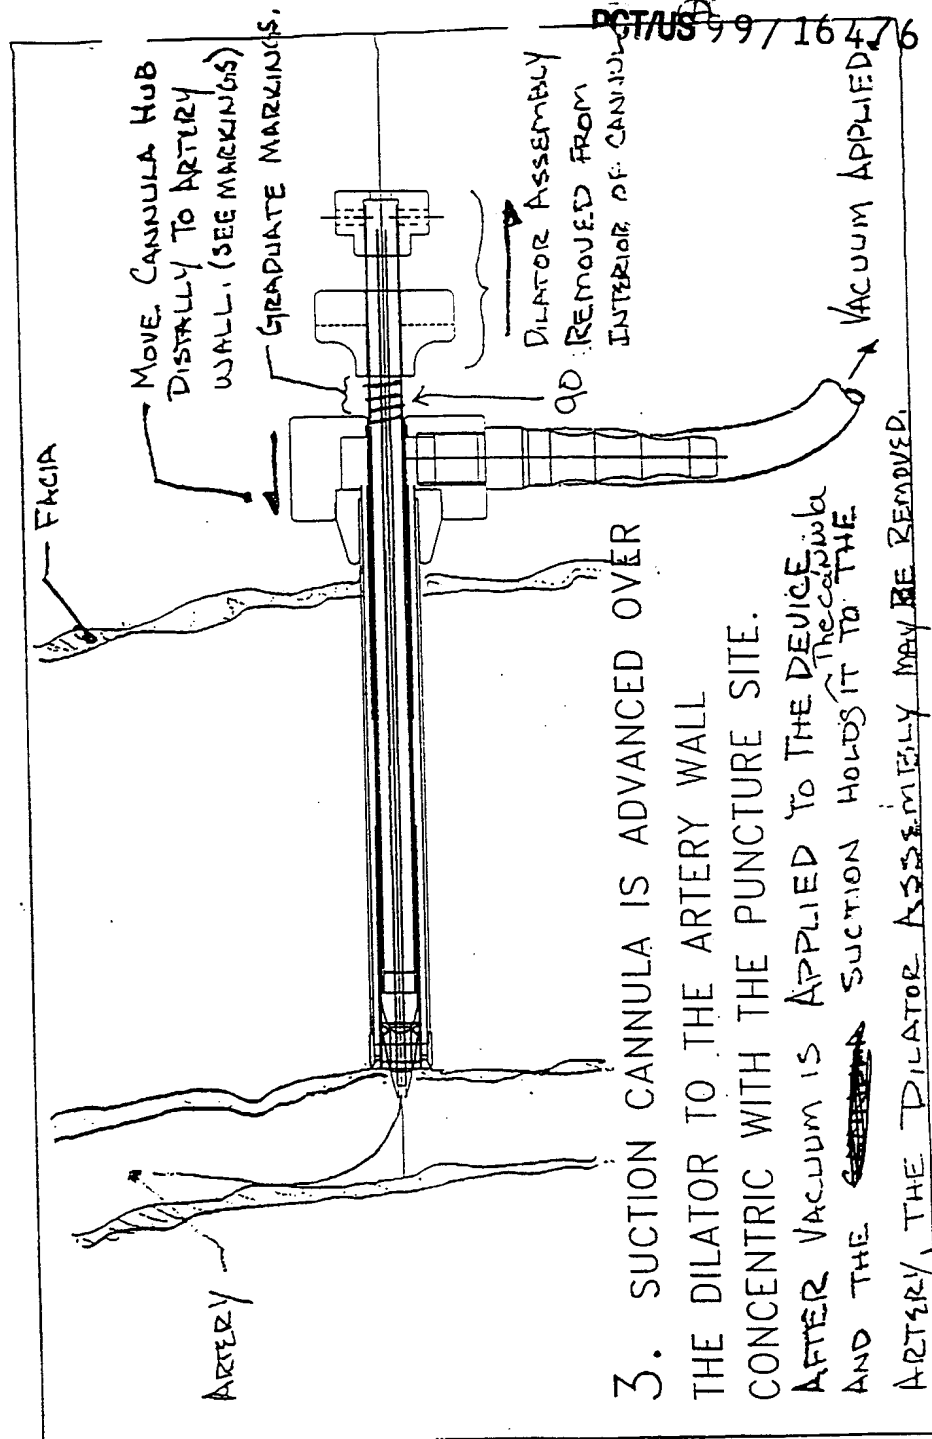 PCT/US 99/16476
FACIA
MOVE CANNULA HUB
DISTALLY TO ARTERY
WALL. (SEE MARKINGS)
GRADUATE MARKINGS.
DILATOR ASSEMBLY
REMOVED FROM
INTERIOR OF
90
VACUUM APPLIED.
ARTERY
3. SUCTION CANNULA IS ADVANCED OVER
THE DILATOR TO THE ARTERY WALL
CONCENTRIC WITH THE PUNCTURE SITE.
AFTER VACUUM IS APPLIED TO THE DEVICE
The cannula
AND THE SUCTION HOLDS IT TO THE
ARTERY, THE DILATOR ASSEMTELY MAY BE REMOVED.